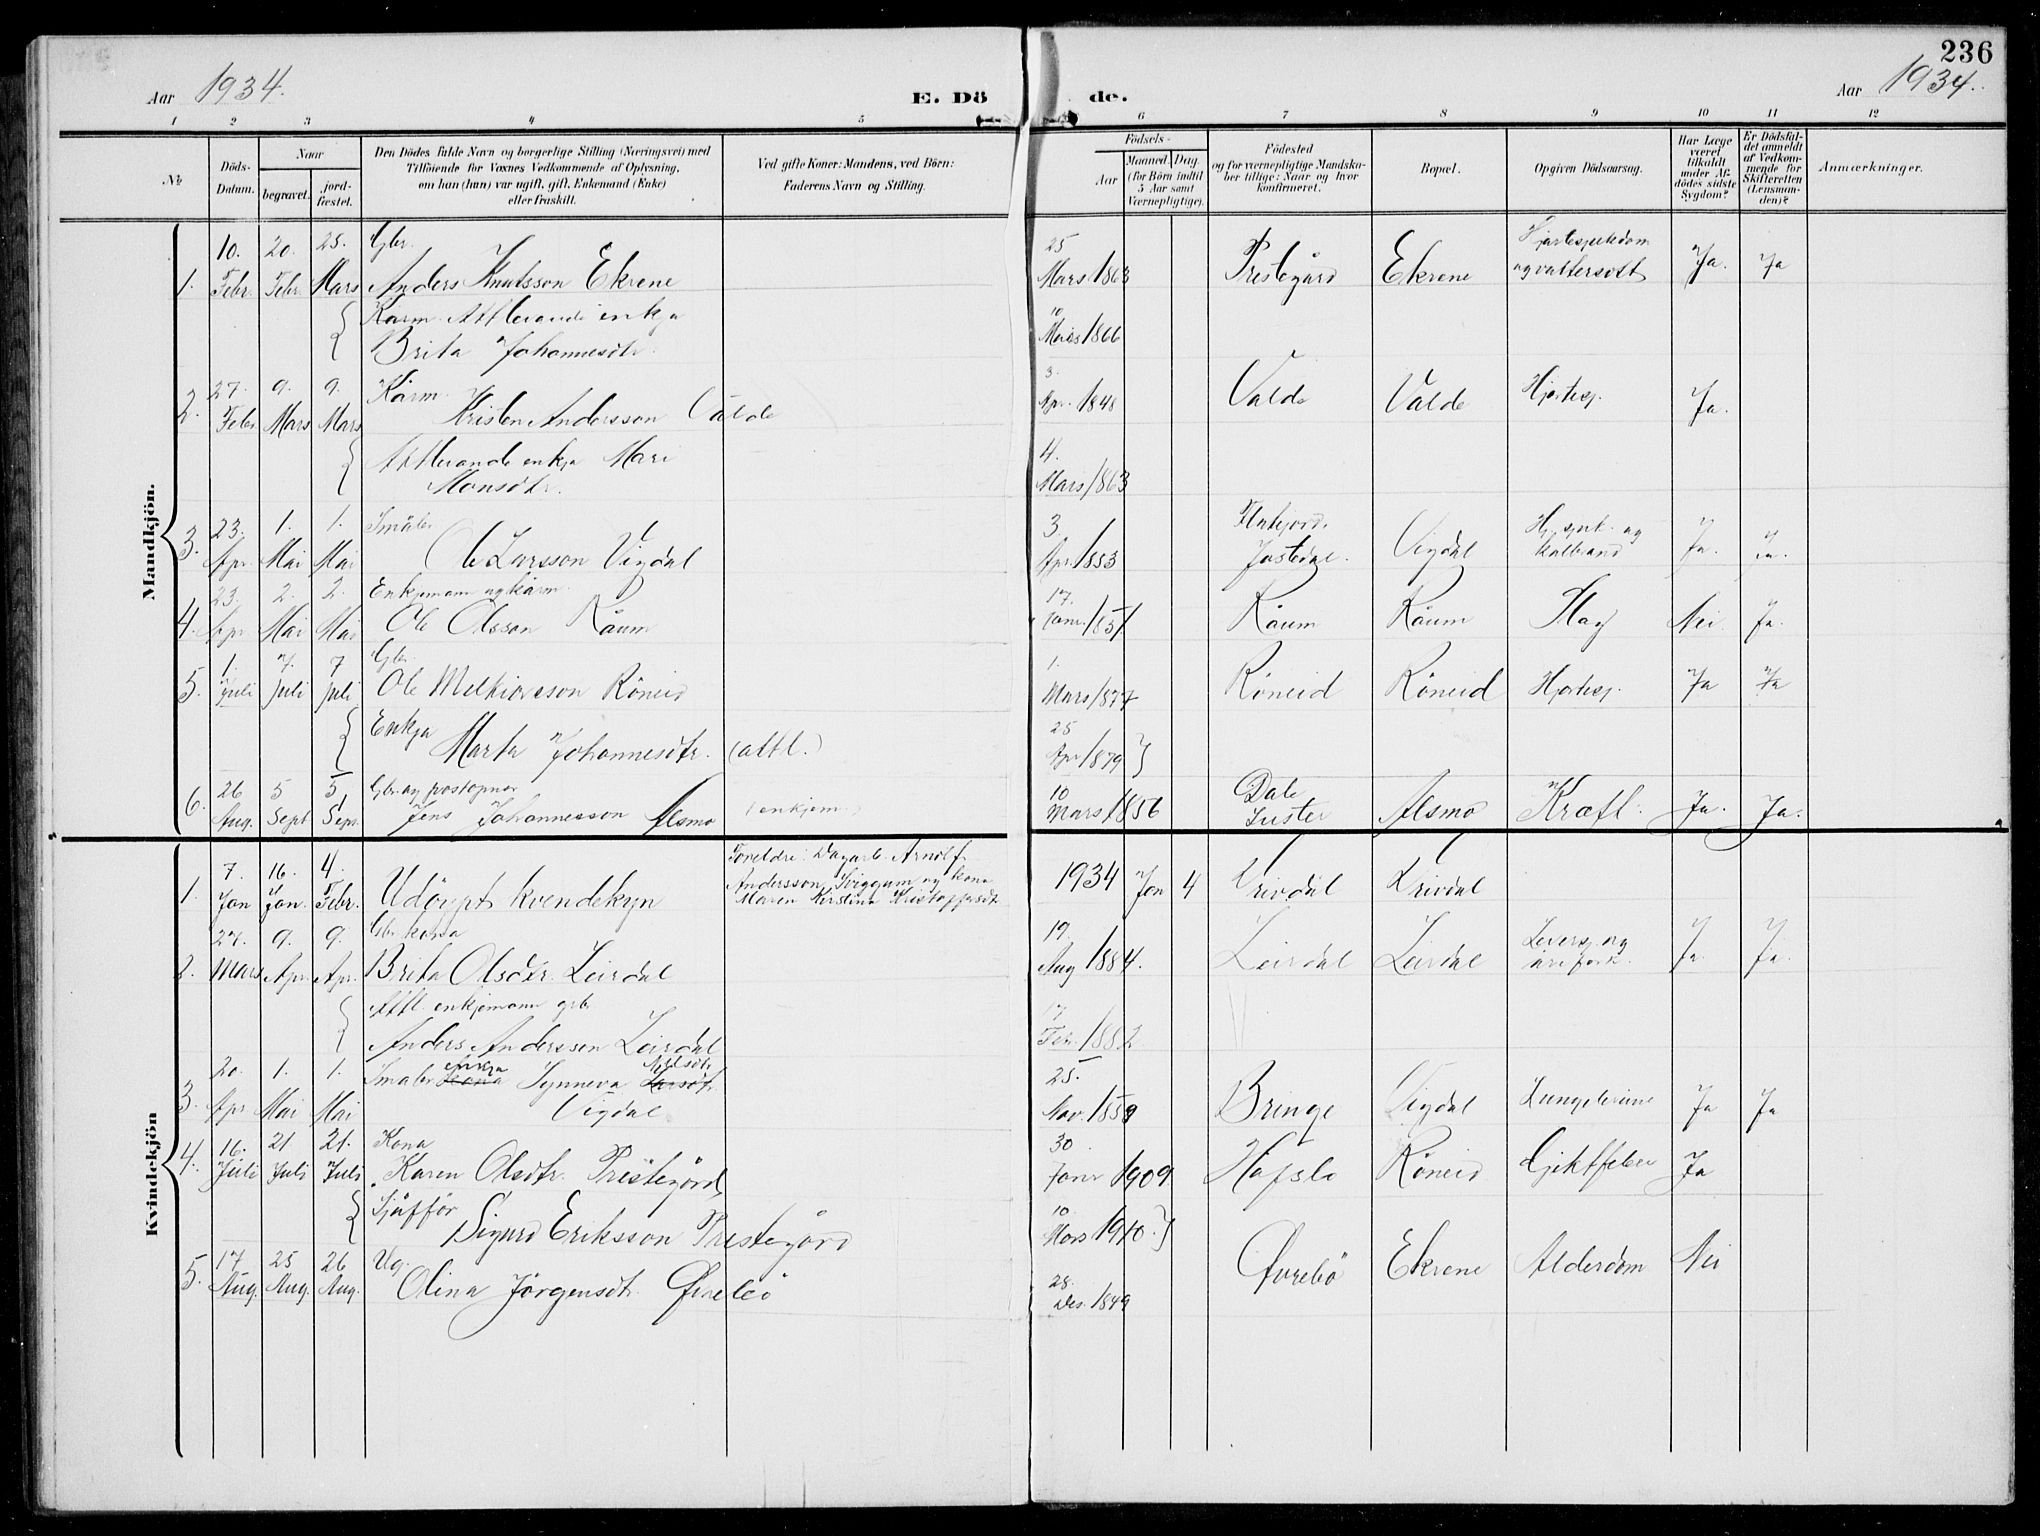 236
Aar 1934.
E. Dö de.
Aar 1934.
1 2 3 4 5 6 7 8 9 10 11 12
No
Döds-Datum.
Naar
begravet.
jord-fæstet.
Den Dödes fulde Navn og borgerlige Stilling (Næringsvei) med
Tilföiende for Voxnes Vedkommende af Oplysning,
om han (hun) var ugift, gift, Enkemand (Enke)
eller fraskilt.
Ved gifte Koner: Mandens, ved Börn:
Faderens Navn og Stilling.
Födsels-
Aar
Maaned. Dag.
(for Börn indtil
5 Aar samt
Værnepligtige).
Födested
og for værnepligtige Mandska-
ber tillige: Naar og hvor
konfirmeret.
Bopæl.
Opgiven Dödsaarsag.
Har Læge
været
tilkaldt
under Af-
dödes sidste
Sygdom?
Er Dödsfal-
det anmeldt
af Vedkom-
mende for
Skifteretten
(Lensman-
den)?
Anmærkninger.
Mandkjön.
10. 20. 25. Gbr. 25
1. Febr. Febr. Mars Anders Knutsson Ekrene Mars 1863 Prestegård Ekrene og vattersott Ja. Ja
Kårm. Attlevande enkja 10
Brita Johannesdtr. 1866
27. 9. 9. Kårm. 3.
2. Febr Mars Mars Kristen Andersson Valde Apr. 1848 Valde Valde Hjartesj. Ja.
Attlevande enkja Mari 4.
Monsdtr. Mars 1863
23. 1. 1. Småbr. 3
3. Apr. Mai Mai Ole Larsson Vigdal Apr. 1853 Jostedal. Vigdal Ja. Ja.
23. 2. 2. Enkjemann og kårm. 17.
4. Apr Mai Mai Ole Olsson Råum Janr. 1851 Råum Råum Slag Nei. Ja.
1. 7. 7 Gbr. 1.
5. Juli Juli Juli Ole Melkiorsson Röneid Mars 1877 Röneid Röneid Hjartesj. Ja Ja
Enkja 25
Marta Johannesdtr. (attl.) Apr 1879
26 5 5 Gbr. og postopnar 10
6. Aug. Sept Sept. Jens Johannesson Alsmo (enkjem.) Mars 1856 Dale Luster Alsmo Kræft. Ja. Ja.
Kvindekjön
7. 16. 4. Foreldre: Dagarb. Arnolf
Andersson Sviggum og kona
1. Jan Jan. Febr. Udöypt kvendekyn Maren Kirstina Kristoffersdtr 1934 Jan 4
27. 9. 9. Gbr. kona 19.
2. Mars Apr. Apr. Brita Olsdtr. Leirdal Aug 1884. Leirdal Leirdal Leversj. og Ja. Ja.
Attl. enkjemann gbr. 17
Anders Anderssen Leirdal Febr. 1882
20. 1. 1. Småbr. enkja Kona Synneva Nilsdtr. Larsdtr 25.
3. Apr Mai Mai Vigdal Nov. 1859 Bringe Vigdal Ja Ja
16. 21. 21. Kona 30
4. Juli Juli Juli Karen Olsdtr. Prestegård Janr 1909 Hafslo Röneid Giktfeber Ja
Sjåfför 10.
Sigurd Eriksson Prestegård Mars 1910.
17 25 26 Ug. 28.
5. Aug. Aug. Aug. Olina Jörgensdtr. Övrebö Des. 1849 Övrebö Ekrene Alderdom Nei